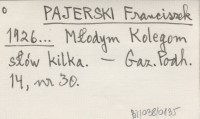 o PAJERSKI Franciszek
1926... Młodym Kolegom
słów kilka. — Gaz. Podh.
14, nr 30.